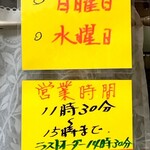 ○日曜日
○水曜日
営業時間
11時30分
~
15時まで
ラストオーダー14時30分